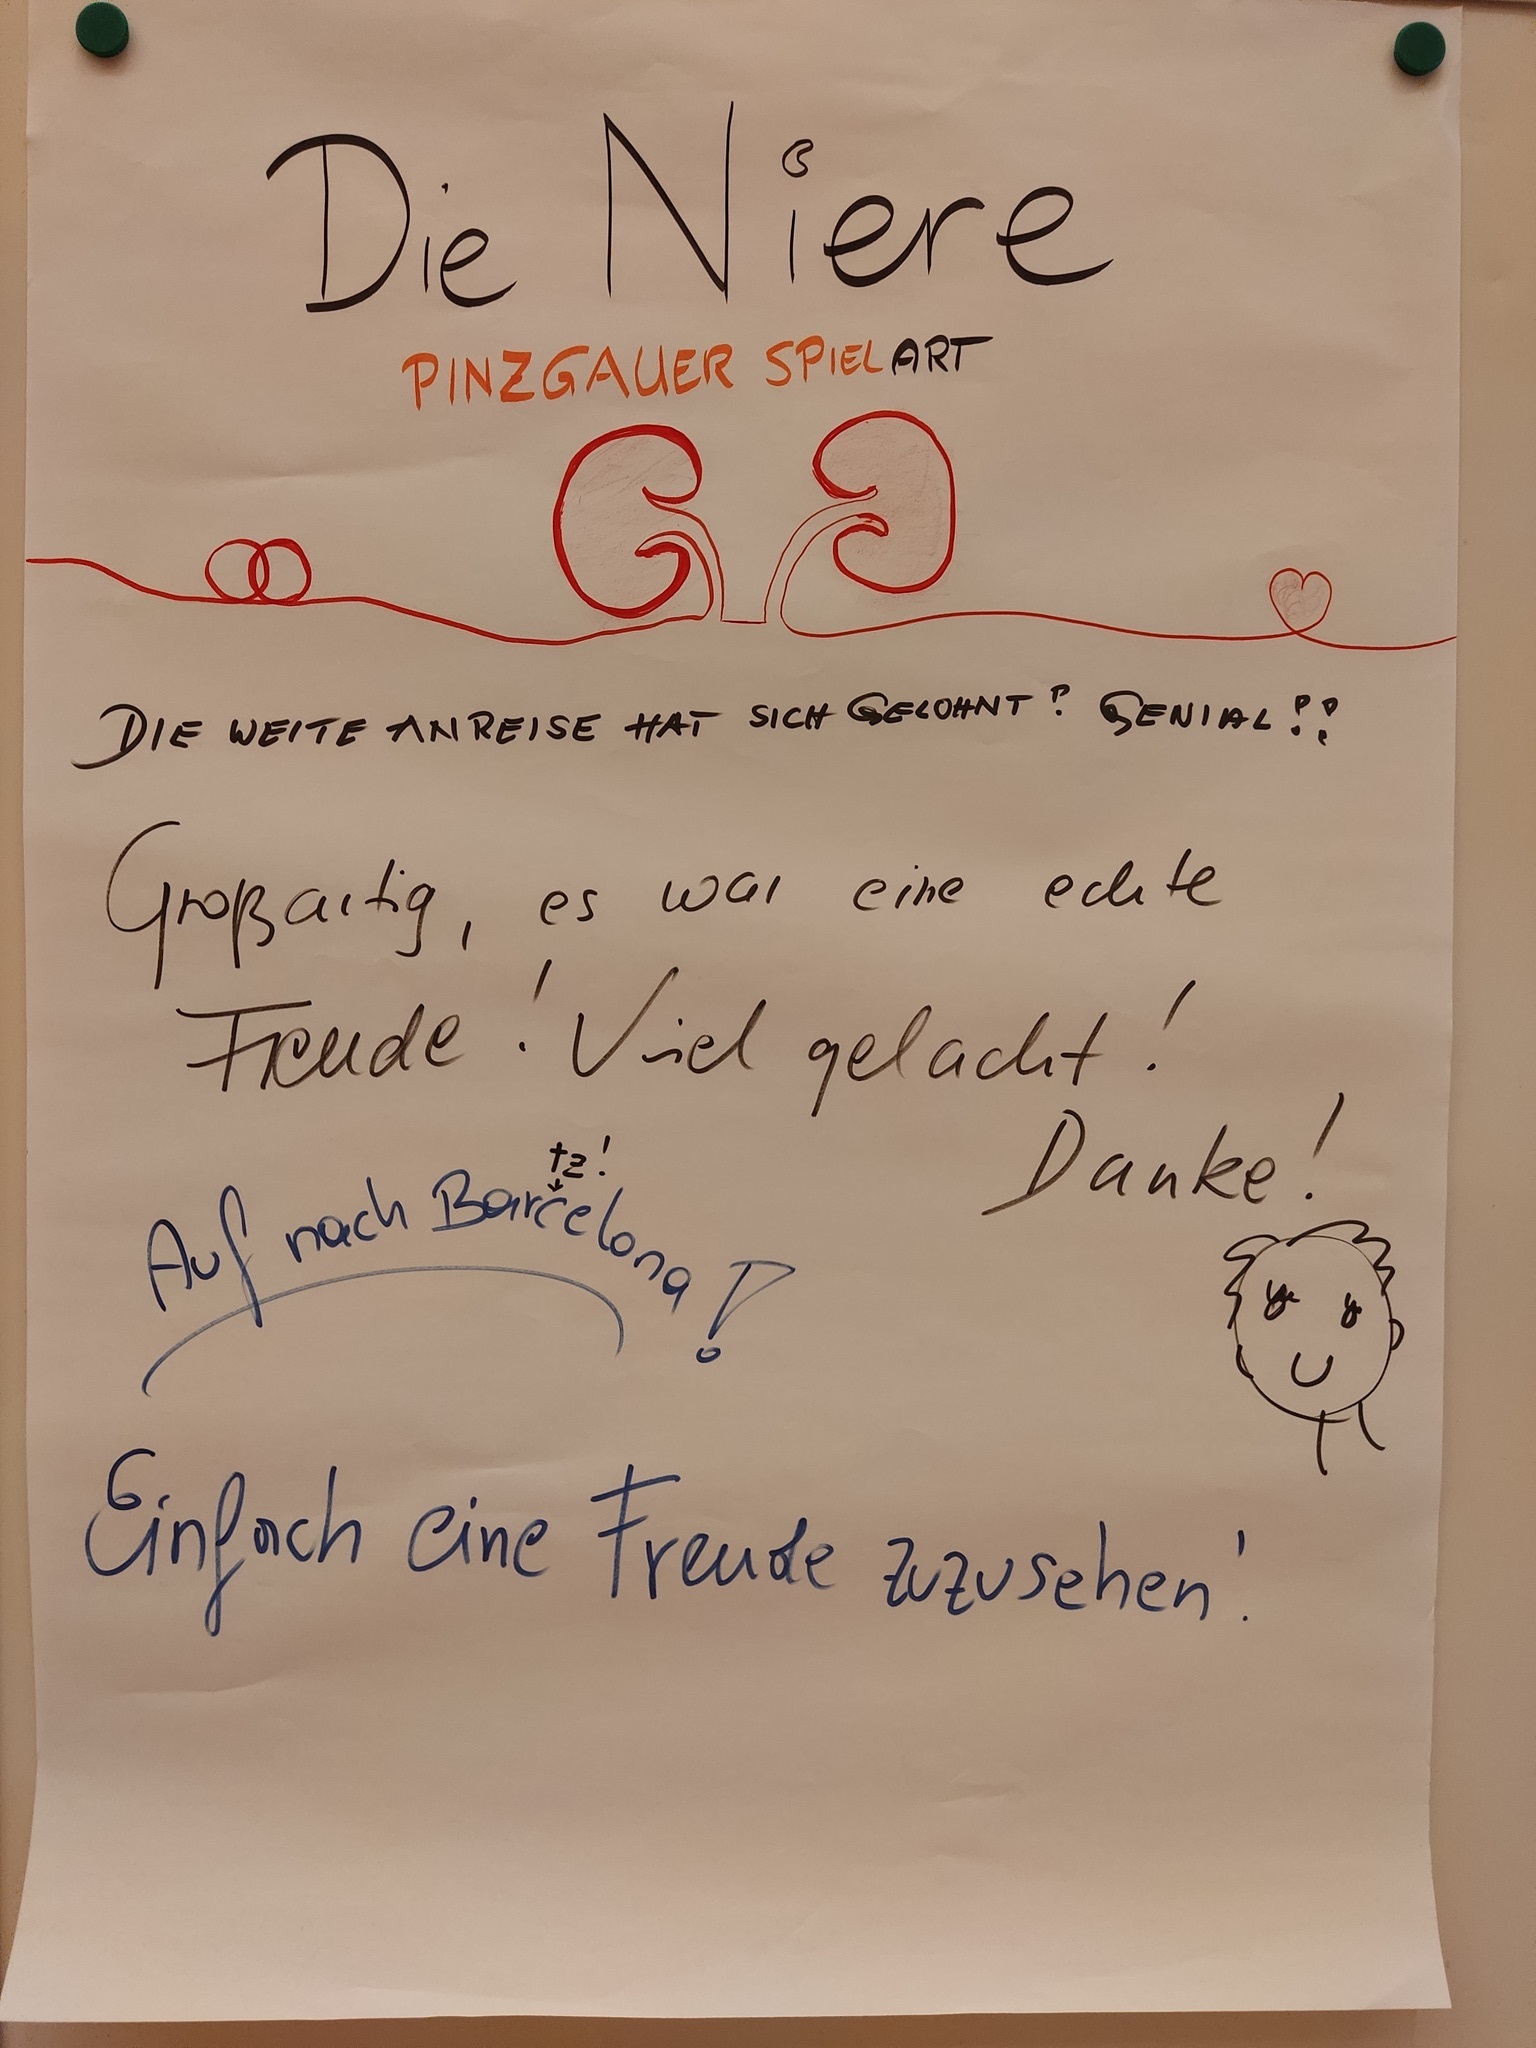 Die Niere
PINZGAUER SPIELART
DIE WEITE ANREISE HAT SICH GELOHNT! GENIAL!!
Großartig, es war eine echte
Freude! Viel gelacht!
Danke!
tz!
Auf nach Barcelona!
Einfach eine Freude zuzusehen!